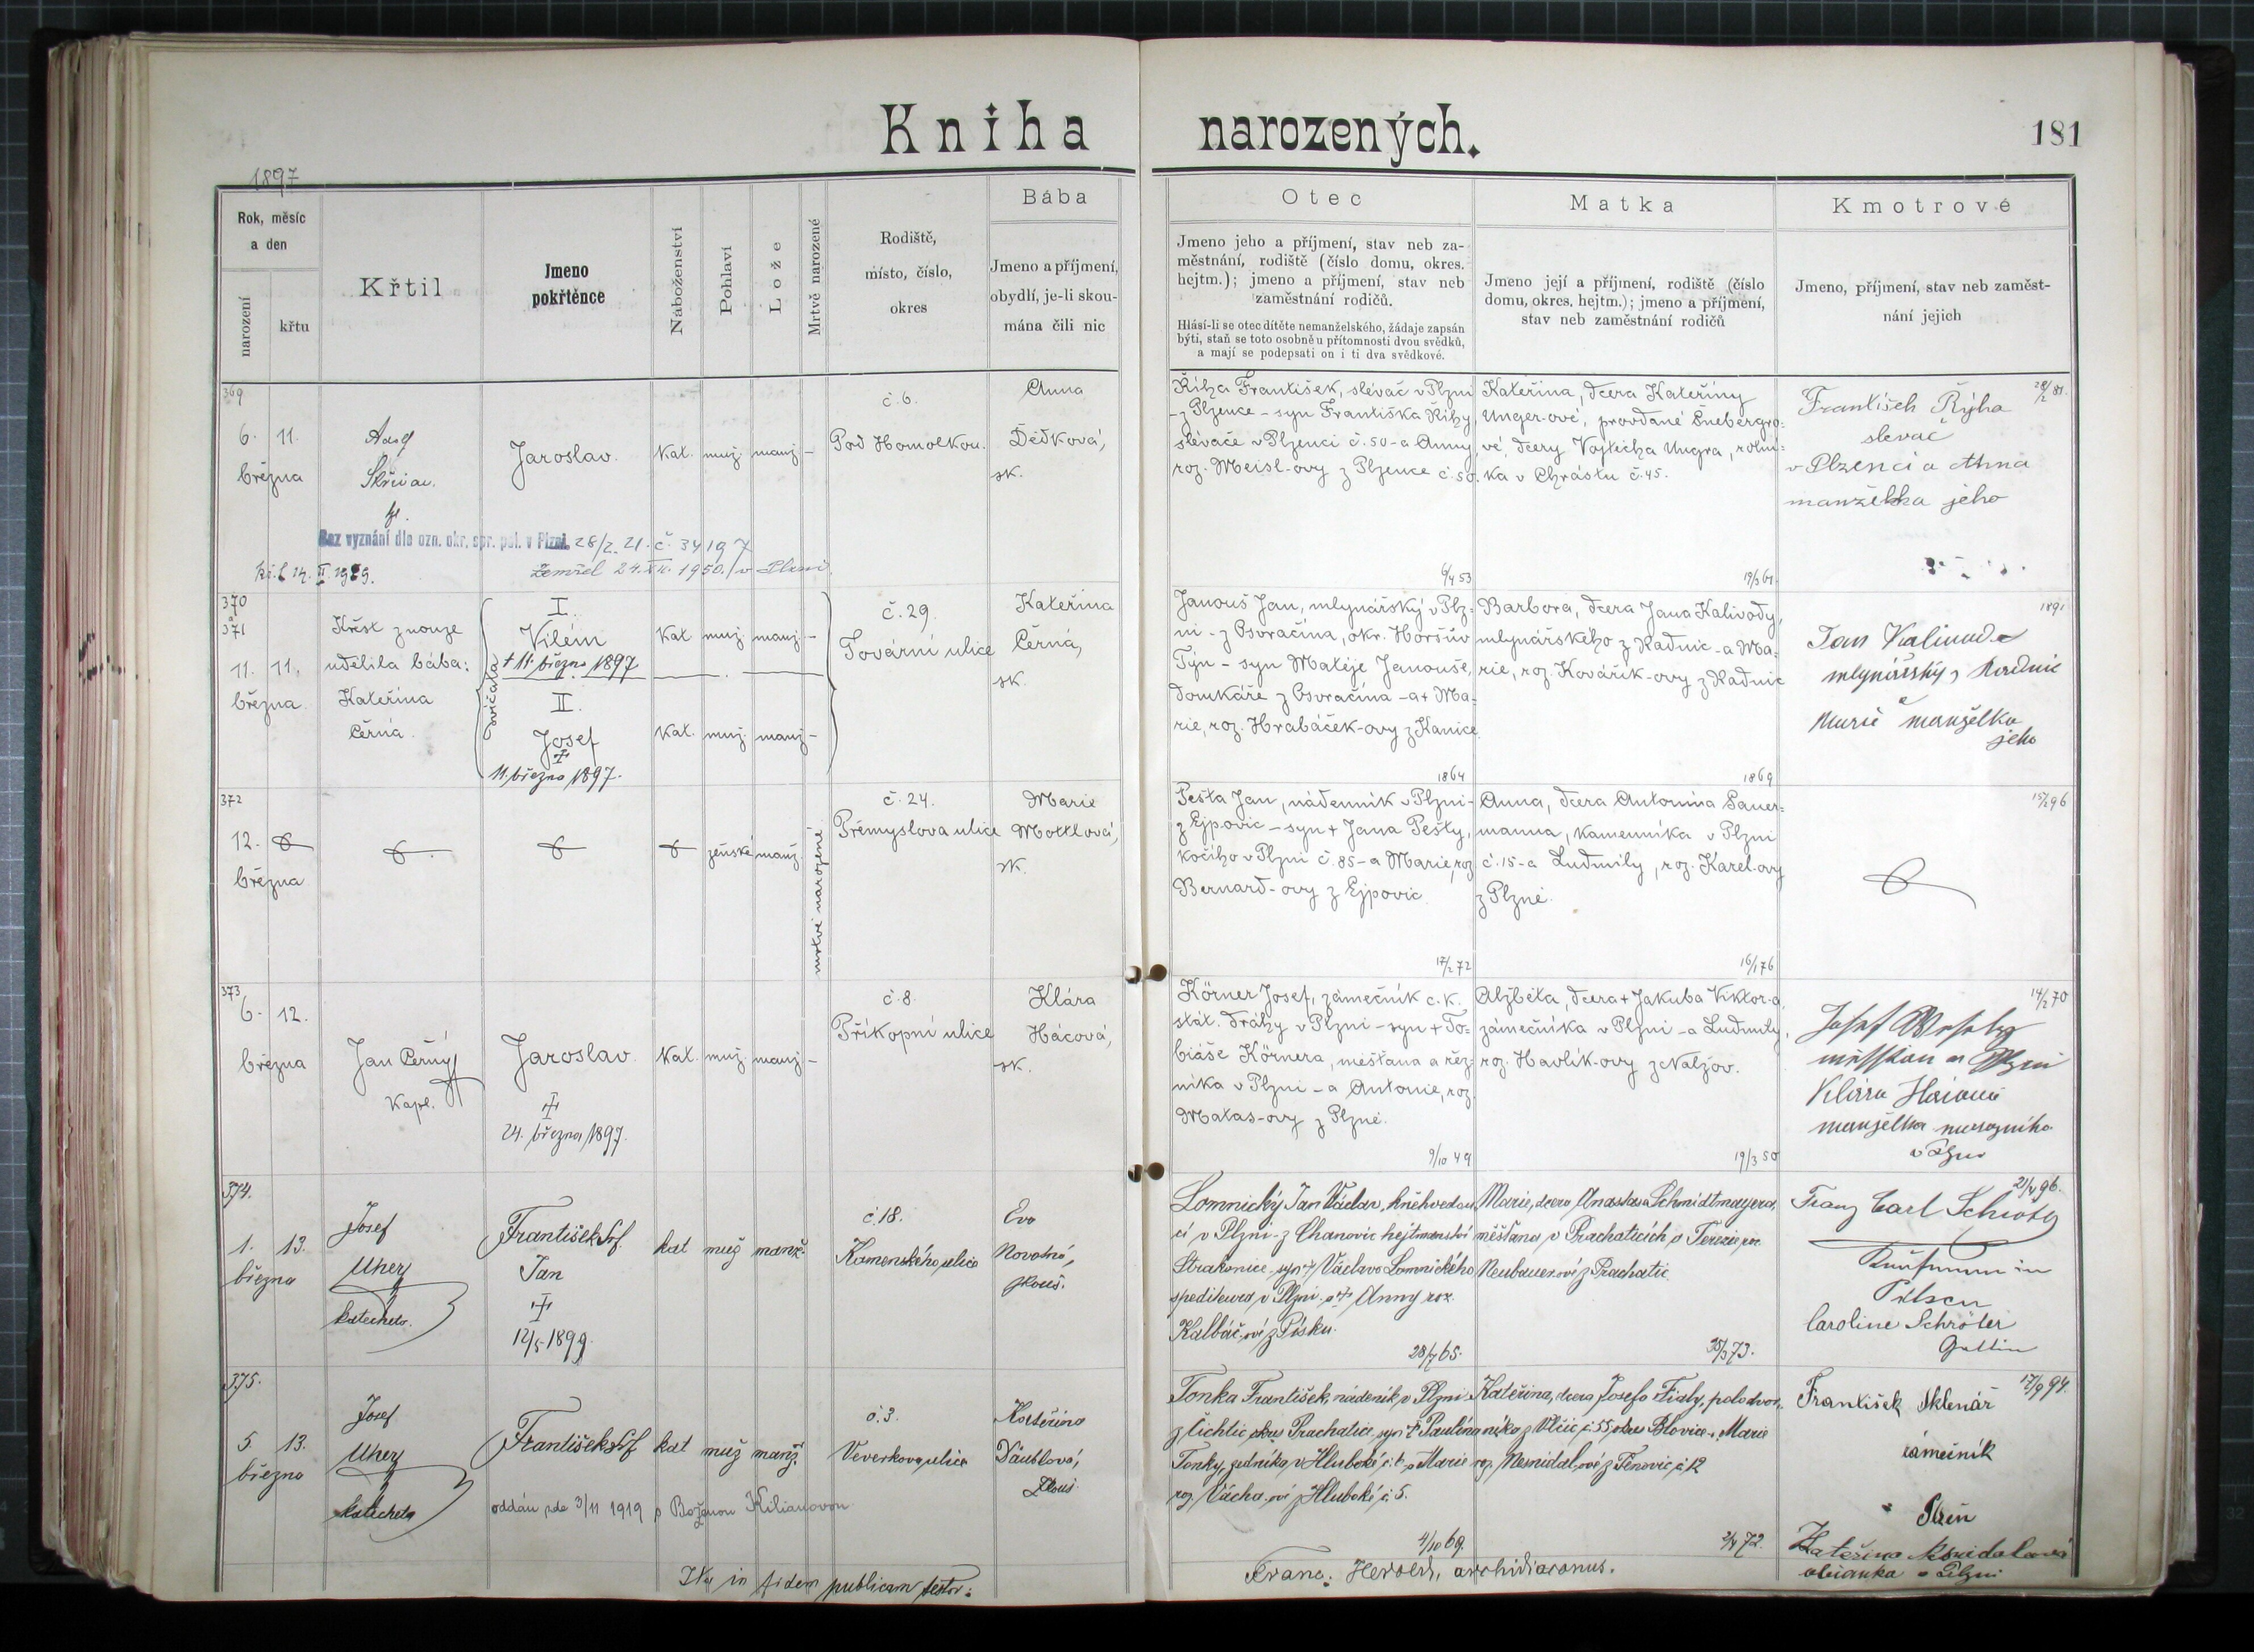 Kniha narozených.
181
1897
Rok, měsíc
a den
narození
křtu
Křtil
Jmeno
pokřtěnce
Náboženství
Pohlaví
Lože
Mrtvě narozené
Rodiště,
místo, číslo,
okres
Bába
Jmeno a příjmení,
obydlí, je-li skou-
mána čili nic
Otec
Jmeno jeho a příjmení, stav neb za-
městnání, rodiště (číslo domu, okres.
hejtm.); jmeno a příjmení, stav neb
zaměstnání rodičů.
Hlásí-li se otec dítěte nemanželského, žádaje zapsán
býti, staň se toto osobně u přítomnosti dvou svědků,
a mají se podepsati on i ti dva svědkové.
Matka
Jmeno její a příjmení, rodiště (číslo
domu, okres, hejtm.); jmeno a příjmení,
stav neb zaměstnání rodičů
Kmotrové
Jmeno, příjmení, stav neb zaměst-
nání jejich
369
6. 11.
března
Adolf
Skřivan.
Jaroslav.
Kat. muž. manž. –
č. 6.
Pod Homolkou.
Anna
Dědková,
sk.
Bez vyznání dle ozn. okr. spr. pol. v Plzni. 28/2. 21. č. 34197
Zemřel 24. XII. 1950. v Plzni.
Říha František, slévač v Plzni
– z Plzence – syn Františka Říhy,
slévače v Plzenci č. 50 – a Anny,
roz. Meisl-ovy z Plzence č. 50.
6/4 53
Kateřina, dcera Kateřiny
Unger-ové, provdané Šnebergro-
vé, dcery Vojtěcha Ungra, rolní-
ka v Chrástu č. 45.
19/3 61.
28/2 81.
František Rýha
slevač
v Plzenci a Anna
manželka jeho
370
a
371
11. 11.
března
Křest z nouze
udělila bába:
Kateřina
Černá.
dvojčata
I.
Vilém
+ 11. března 1897
II.
Josef
+
11. března 1897.
Kat. muž. manž. –
Kat. muž. manž. –
č. 29.
Tovární ulice
Kateřina
Černá,
sk.
Janouš Jan, mlynářský v Plz-
ni – z Osvračína, okr. Horšův
Týn – syn Matěje Janouše,
domkáře z Osvračína – a + Ma-
rie, roz. Hrabáček-ovy z Kanice.
1864
Barbora, dcera Jana Kalivody,
mlynářského z Radnic – a Ma-
rie, roz. Kovářík-ovy z Radnic
1869
1891
Jan Kalivoda
mlynářský z Radnic
a
Marie manželka
jeho
372
12.
března
ženské manž.
mrtvě narozené
č. 24.
Přemyslova ulice
Marie
Mottlová,
sk.
Pešta Jan, nádenník v Plzni –
z Ejpovic – syn + Jana Pešty,
kočího v Plzni č. 85 – a Marie, roz.
Bernard-ovy z Ejpovic.
17/2 72
Anna, dcera Antonína Sauer-
manna, kamenníka v Plzni
č. 15 – a Ludmily, roz. Karel-ovy
z Plzně.
16/1 76
15/2 96
373
6. 12.
března
Jan Černý
Kapl.
Jaroslav.
+
24. března 1897.
Kat. muž. manž. –
č. 8.
Příkopní ulice
Klára
Hácová,
sk.
Körner Josef, zámečník c. k.
stát. dráhy v Plzni – syn + To-
biáše Körnera, měšťana a řez-
níka v Plzni – a Antonie, roz.
Matas-ovy z Plzně.
9/10 49
Alžběta, dcera + Jakuba Viktor-a
zámečníka v Plzni – a Ludmily,
roz. Havlík-ovy z Nalžov.
19/3 50
14/2 70
Klára
manželka
v Plzni
374.
1. 13.
března
Josef
Uherý
katecheta.
František Srf.
Jan
+
12/5 1899.
kat muž manž.
č. 18.
Komenského ulice
Eva
Novotná,
zkouš.
Lomnický Jan Václav, knihvedou-
cí v Plzni z Chanovic hejtmanství
Strakonice – syn + Václava Lomnického
speditéra v Plzni a + Anny roz.
Kalbáč-ové z Písku.
28/7 65.
Marie, dcera Schmidtmayera,
měšťana v Prachaticích a Terezie roz.
Neubauerové z Prachatic.
21/5 96.
Franz Carl Schröter
Kaufmann in
Pilsen
Caroline Schröter
Gattin
375.
5. 13.
března
Josef
Uherý
katecheta
František Srf
kat muž manž.
č. 3.
Veverkova ulice
Kateřina
Däublová,
zkouš.
oddán zde 3/11 1919 s Boženou Kilianovou
Tonka František, nádeník v Plzni
z Lichtic, okres Prachatice, syn + Paulína
Tonky, sedníka v Hluboké č. 6 a Marie
roz. Vácha-ové z Hluboké č. 5.
4/10 69.
Kateřina, dcera Josefa Fialy, polodvor-
níka z Vlčic č. 55, okres Blovice a Marie
roz. č. 12
2/4 72.
17/9 94.
František Sklenář
zámečník
Plzeň
Kateřina
občanka v Plzni
Ita in fidem publicam testor:
Franc. Herold, archidiaconus.